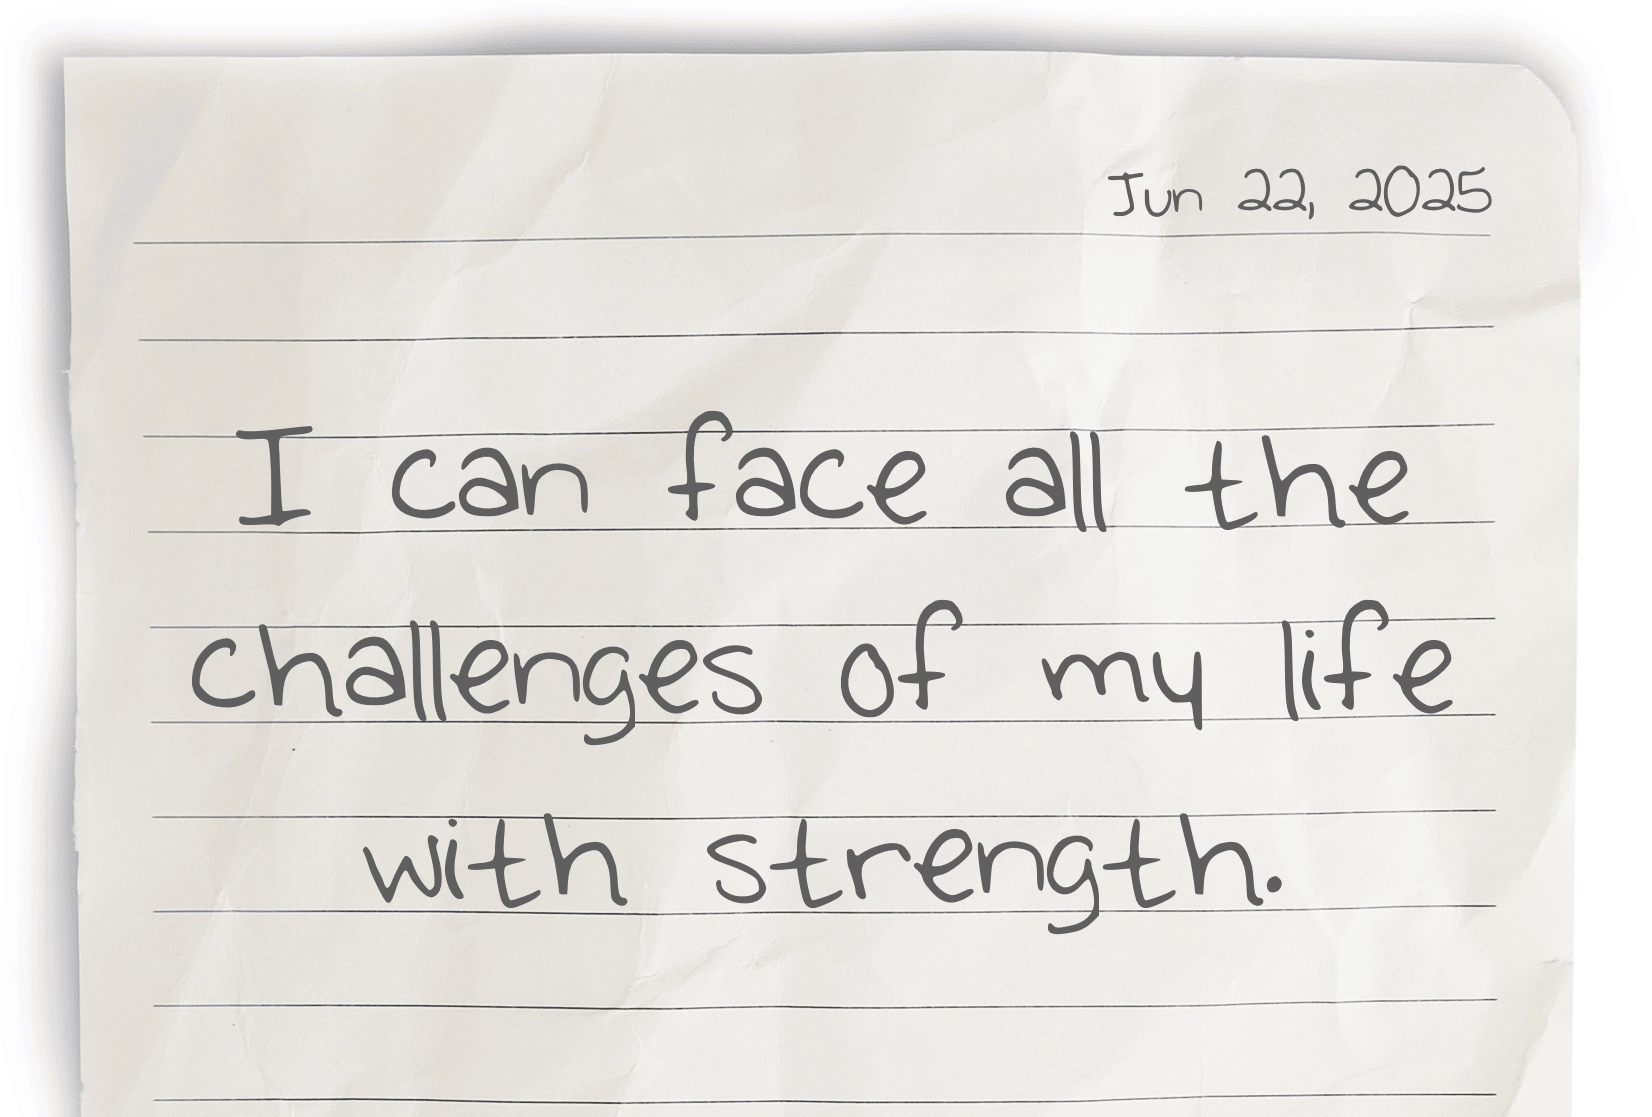 Jun 22, 2025
I can face all the
challenges of my life
with strength.